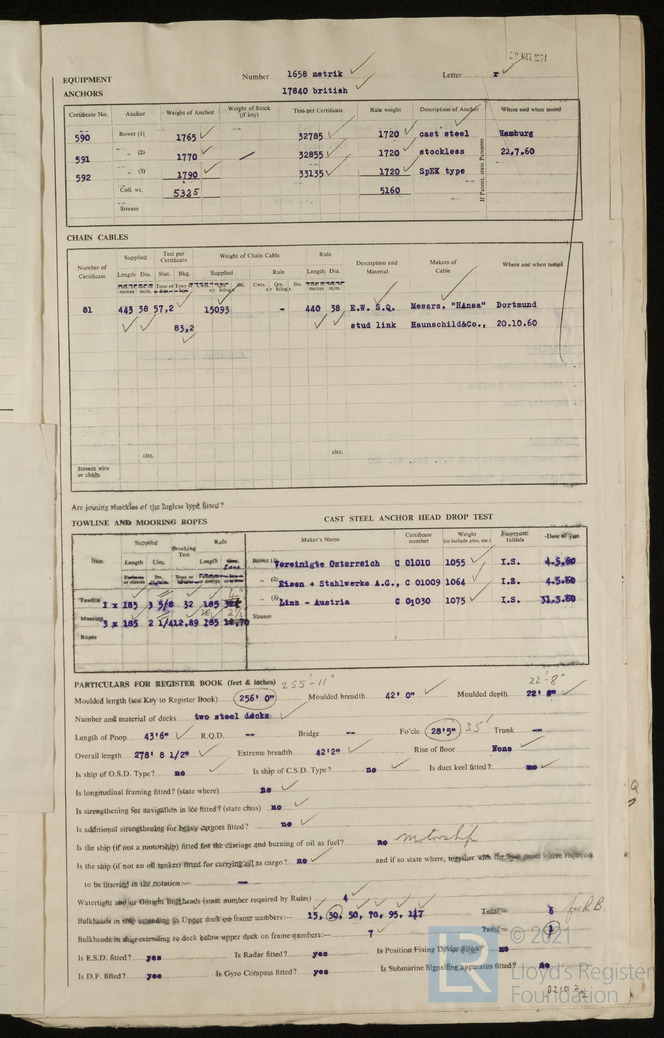 EQUIPMENT Number 1658 metrik Letter r
ANCHORS 17840 british
Certificate No. Anchor Weight of Anchor Weight of Stock (if key) Test per Certificate Rule weight Description of Anchor Where and when tested
590 Bower (1) 1765 32785 1720 cast steel Hamburg
591 „ (2) 1770 32855 1720 stockless 22.7.60
592 „ (3) 1790 33135 1720 SpEK type
Coll. wt. 5325 5160
Stream
If Patent, state Patentee
CHAIN CABLES
Number of Certificate Supplied Test per Certificate Weight of Chain Cable Rule Description and Material Makers of Cable Where and when tested
Length Dia. Stat. Bkg. Supplied Rule Length Dia.
81 443 38 57,2 15093 - 440 38 E.W. S.Q. Messrs. "HAnsa" Dortmund
83,2 stud link Haunschild&Co., 20.10.60
circ. circ.
Stream wire or chain
Are joining shackles of the lugless type fitted?
TOWLINE AND MOORING ROPES CAST STEEL ANCHOR HEAD DROP TEST
Item Supplied Breaking Test Rule Maker's Name Certificate number Weight (to include pins, etc.) Surveyors' Initials Date of Test
Length Circ. Length
Bower (1) Vereinigte Osterreich C 01010 1055 I.S. 4.5.60
„ (2) Eisen + Stahlwerke A.G., C 01009 1064 I.S. 4.5.60
„ (3) Linn - Austria C 01030 1075 I.S. 31.5.60
Stream
Towline 1 x 185 3 5/8 32 185
Mooring 3 x 185 2 1/4 12,89 185
Ropes
PARTICULARS FOR REGISTER BOOK (feet & inches) 255'-11" 22'-8"
Moulded length (see Key to Register Book) 256' 0" Moulded breadth 42' 0" Moulded depth 22' 8"
Number and material of decks two steel decks
Length of Poop 43'6" R.Q.D. -- Bridge -- Fo'cle 28'5" 35' Trunk --
Overall length 278' 8 1/2" Extreme breadth 42'2" Rise of floor None
Is ship of O.S.D. Type? no Is ship of C.S.D. Type? no Is duct keel fitted? no
Is longitudinal framing fitted? (state where) no
Is strengthening for navigation in ice fitted? (state class) no
Is additional strengthening for heavy cargoes fitted? no
Is the ship (if not a motorship) fitted for the carriage and burning of oil as fuel? no motorship
Is the ship (if not an oil tanker) fitted for carrying oil as cargo? no and if so state where, together with the flash point where required
to be inserted in the notation:- --
Watertight and/or Oiltight Bulkheads (state number required by Rules) 4
Bulkheads in ship extending to Upper deck on frame numbers:— 15, 30, 50, 70, 95, 117 Total= 6 for R B
Bulkheads in ship extending to deck below upper deck on frame numbers:— 7 Total= 1
Is E.S.D. fitted? yes Is Radar fitted? yes Is Position Fixing Device fitted? no
Is D.F. fitted? yes Is Gyro Compass fitted? yes Is Submarine Signalling apparatus fitted? no
© 2021
LR
Lloyd's Register
Foundation